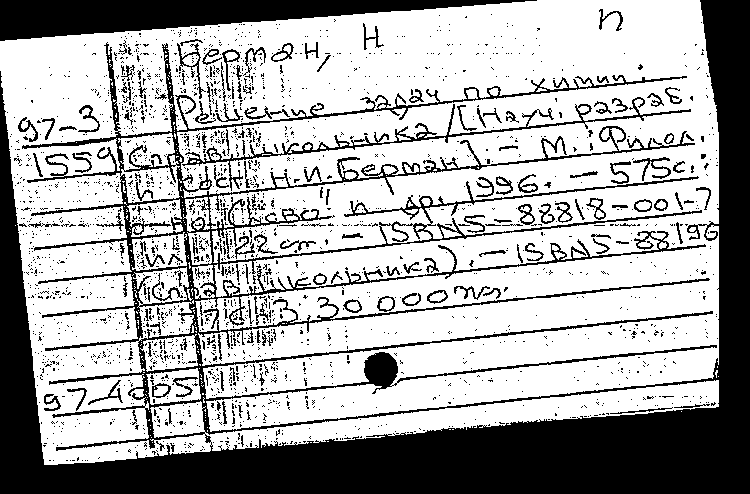 Берман, Н п
97-3 Решение задач по химии:
1559 Справ. школьника / [Науч. разраб.
и сост. Н.И. Берман]. - М.: Филол.
о-во "Слово" и др., 1996. - 575с.:
ил.; 22 см. - ISBN 5-88818-001-7
(Справ. школьника). - ISBN 5-88196
3; 30 000 экз.
97-4005